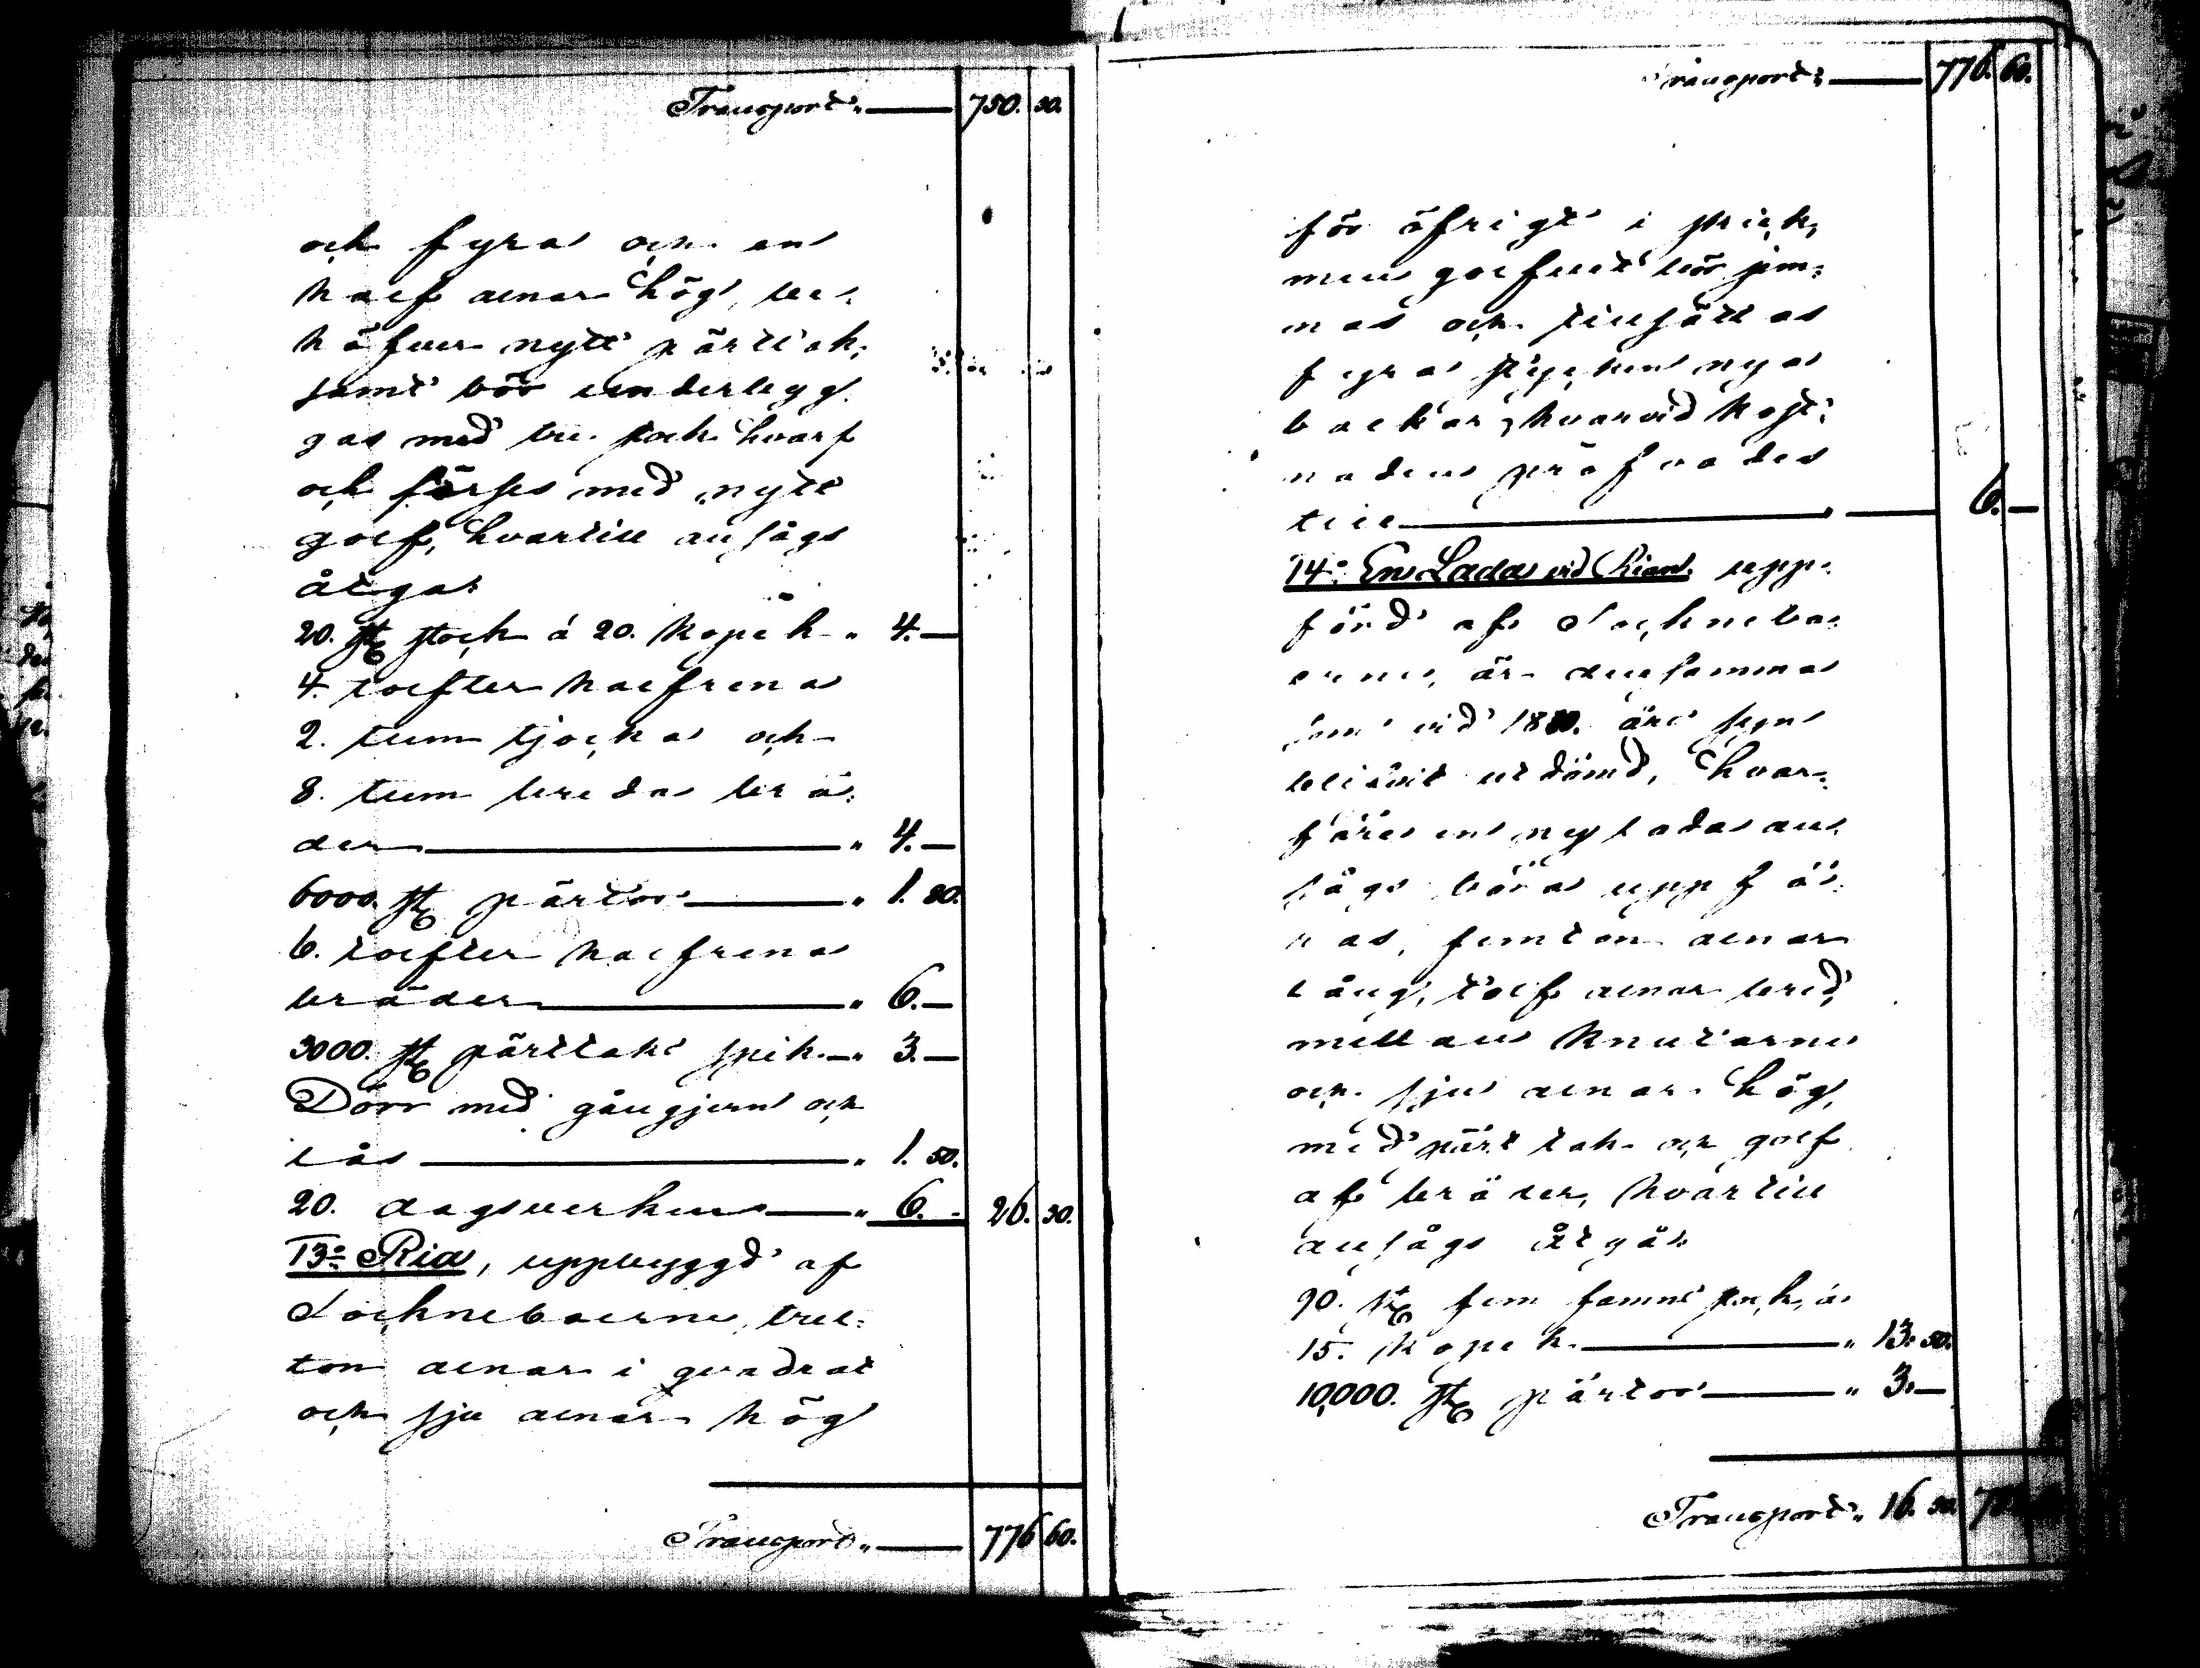 Transport „ — 750. 30.
och fyra och en
half alnar hög, be-
höfver nytt pärttak,
samt bör underlägg-
gas med tre stock hvarf
och förses med nytt
golf, hvartill ansågs
åtgå:
20. st stock á 20. kopek „ 4. —
4. tolfter halfrena
2. tum tjocka och
8. tum breda brä-
der — „ 4. —
6000. st pärtor — „ 1. 80.
6. tolfter halfrena
bräder — „ 6. —
3000. st pärttaks spik — „ 3. —
Dörr med gångjern och
lås — „ 1. 50.
20. dagsverken — „ 6. - 26. 30.
13:o Ria, uppbyggd af
Sockneboerne, tret-
ton alnar i qvadrat
och sju alnar hög
Transport „ — 776 60.
Transport: — 776. 60.
för öfrigt i skick,
men golfvet bör jem-
nas och tillsättas
fyra stycken nya
balkar, hvarvid kost-
naden pröfvades
till — 6. —
14:o En Lada vid Rian, upp-
förd af Socknebo-
erne, är densamma
som vid 1880. års syn
blifvit utdömd, hvar-
före en ny lada an-
sågs böra uppfö-
ras, femton alnar
lång, tolf alnar bred,
mellan knutarne
och sju alnar hög,
med pärttak och golf
af bräder, hvartill
ansågs åtgå:
90. st fem famns stock, á
15. kopek — „ 13. 50.
10,000. st pärtor — „ 3. —
Transport „ 16. 50.